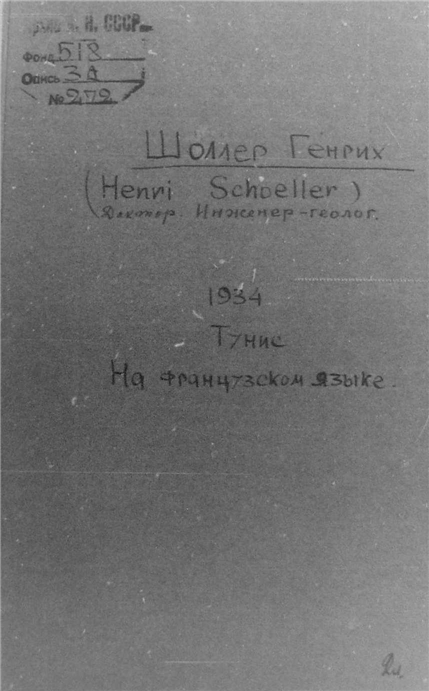 Архив А. Н. СССР
Фонд 518
Опись 3А
№ 272
Шоллер Генрих
(Henri Schoeller)
Доктор. Инженер-геолог.
1934
Тунис
На французском языке.
2л